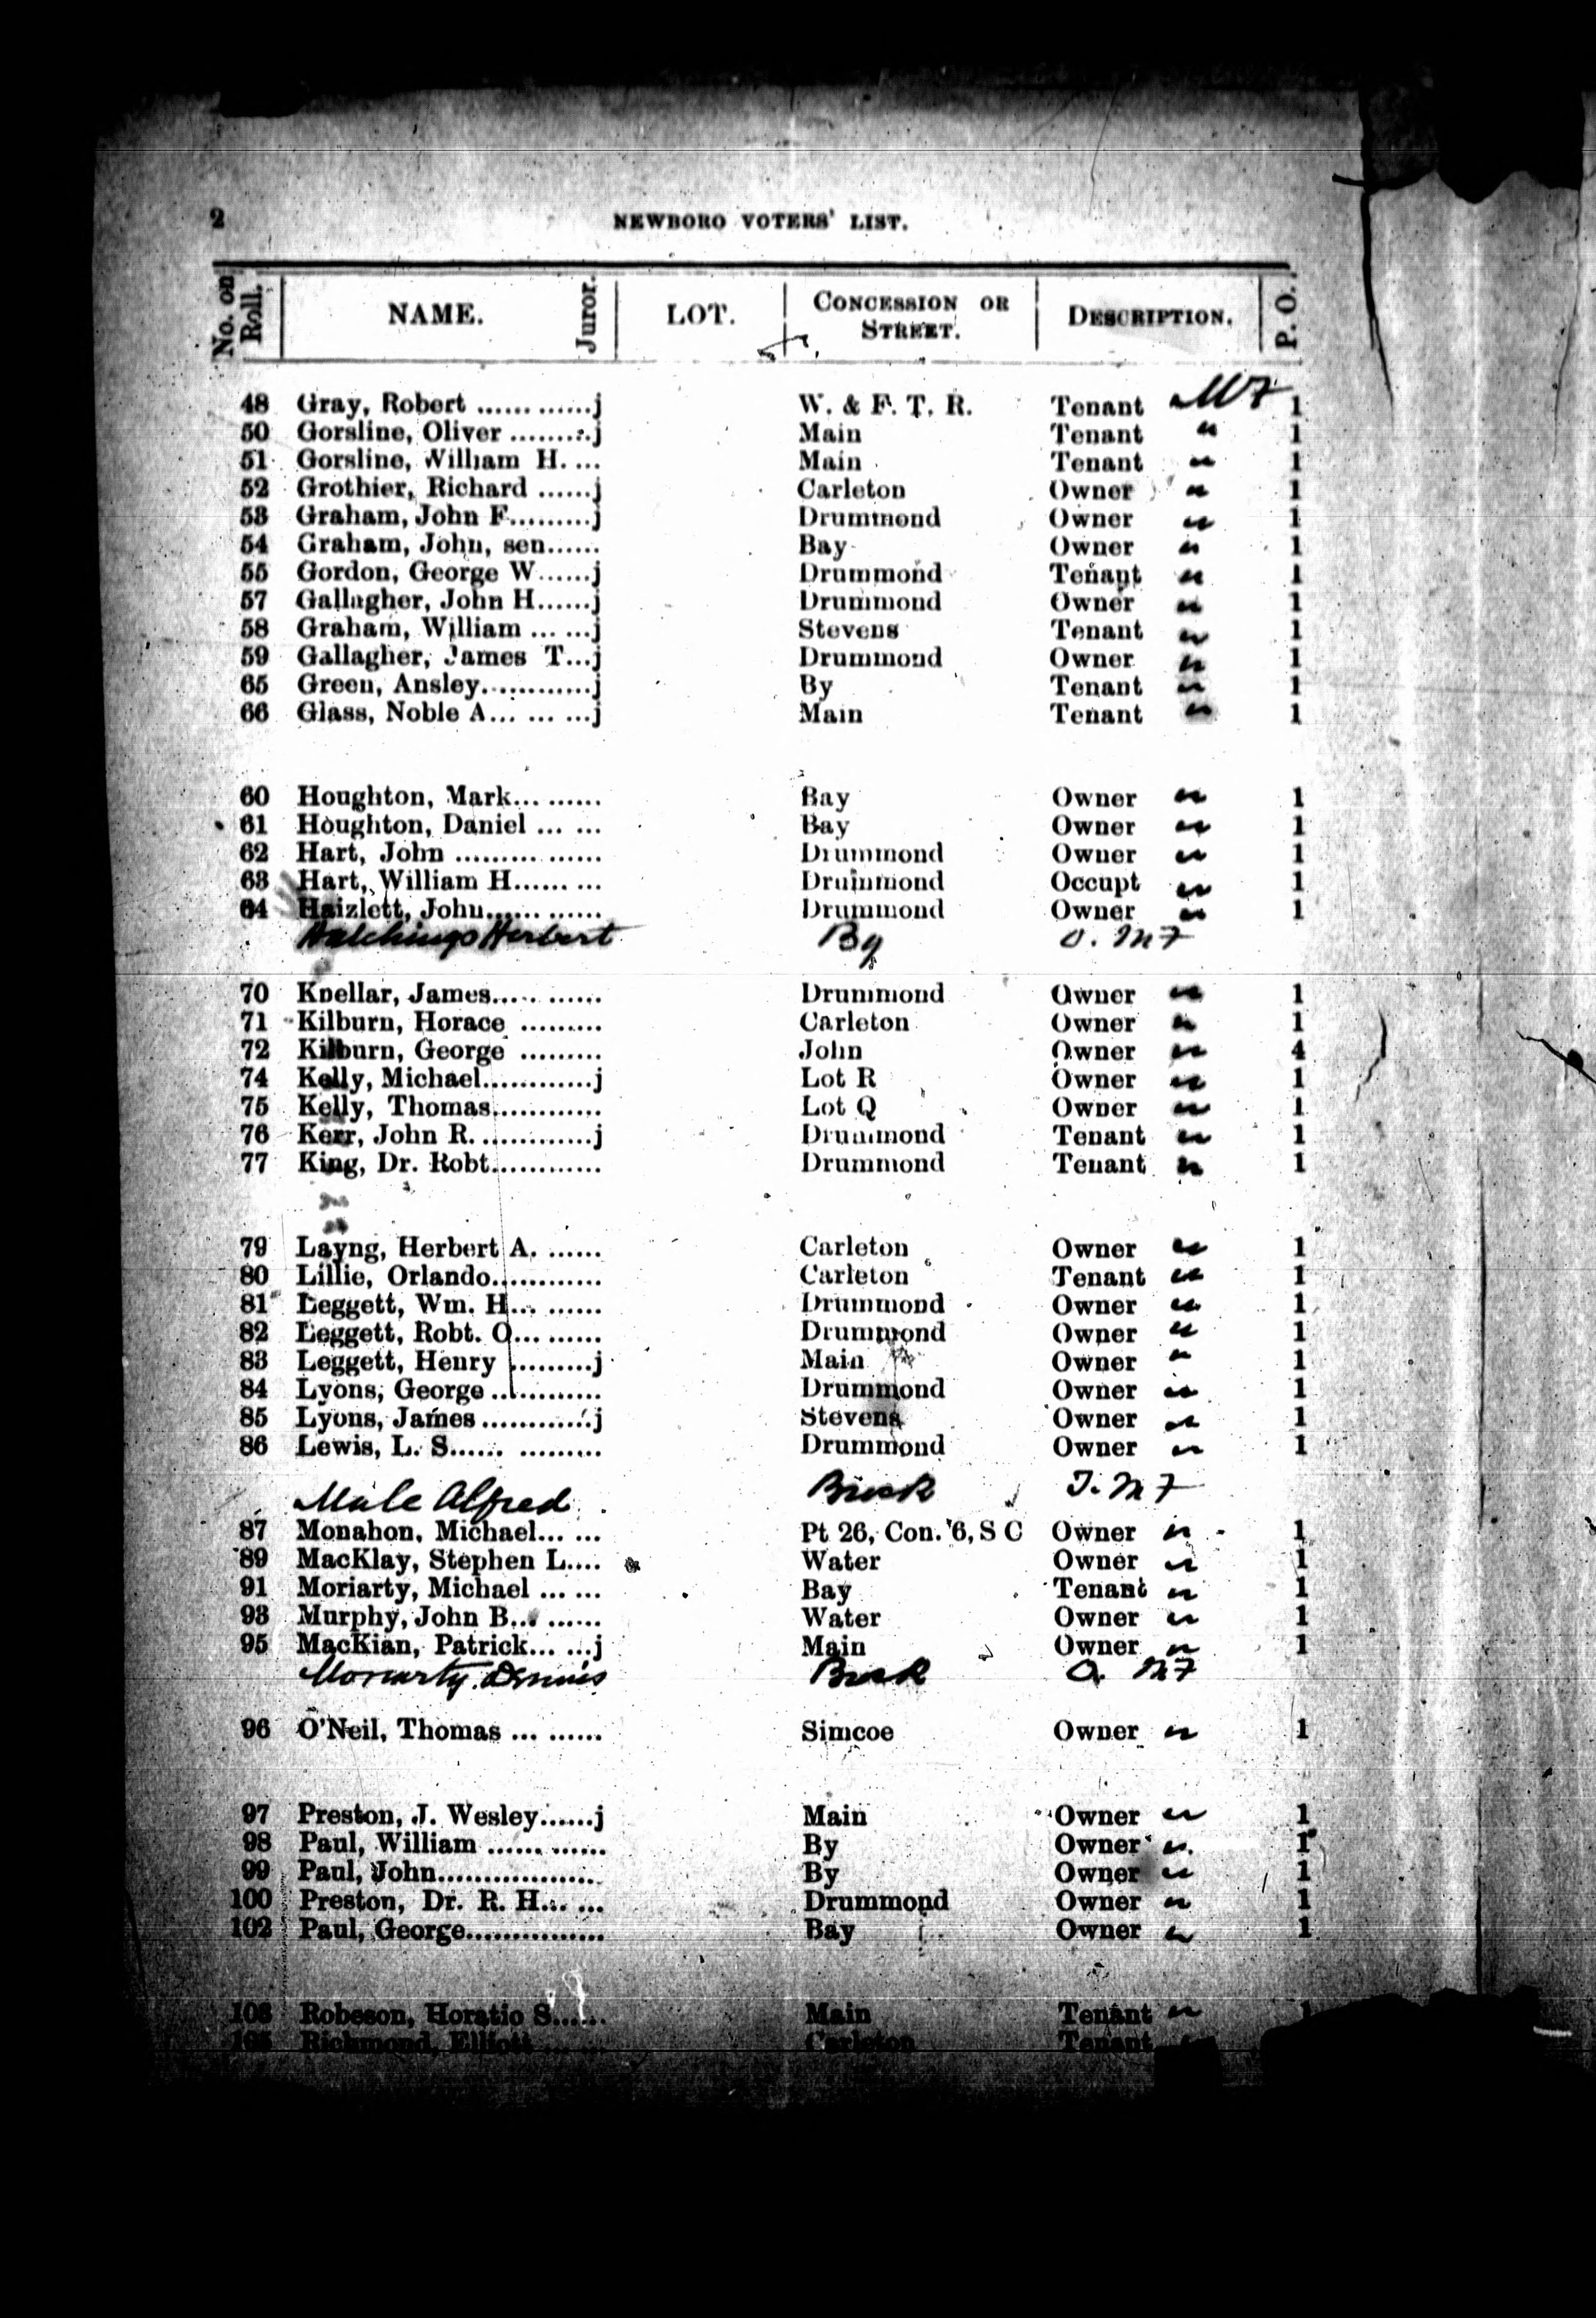 2
NEWBORO VOTERS' LIST.
No. on Roll. NAME. Juror. LOT. CONCESSION OR STREET. DESCRIPTION. P. O.
48 Gray, Robert ............j W. & F. T. R. Tenant MF 1
50 Gorsline, Oliver .........j Main Tenant " 1
51 Gorsline, William H. ... Main Tenant " 1
52 Grothier, Richard ......j Carleton Owner " 1
53 Graham, John F.........j Drummond Owner " 1
54 Graham, John, sen...... Bay Owner " 1
55 Gordon, George W......j Drummond Tenant " 1
57 Gallagher, John H......j Drummond Owner " 1
58 Graham, William ... ...j Stevens Tenant " 1
59 Gallagher, James T...j Drummond Owner " 1
65 Green, Ansley............j By Tenant " 1
66 Glass, Noble A... ... ...j Main Tenant " 1
60 Houghton, Mark... ...... Bay Owner " 1
61 Houghton, Daniel ... ... Bay Owner " 1
62 Hart, John ......... ...... Drummond Owner " 1
63 Hart, William H...... ... Drummond Occupt " 1
64 Haizlett, John...... ...... Drummond Owner " 1
Hutchings Herbert By O. MF
70 Knellar, James..... ...... Drummond Owner " 1
71 Kilburn, Horace ......... Carleton Owner " 1
72 Kilburn, George ......... John Owner " 4
74 Kelly, Michael............j Lot R Owner " 1
75 Kelly, Thomas............ Lot Q Owner " 1
76 Kerr, John R. ............j Drummond Tenant " 1
77 King, Dr. Robt............ Drummond Tenant " 1
79 Layng, Herbert A. ...... Carleton Owner " 1
80 Lillie, Orlando............ Carleton Tenant " 1
81 Leggett, Wm. H... ...... Drummond Owner " 1
82 Leggett, Robt. O... ...... Drummond Owner " 1
83 Leggett, Henry .........j Main Owner " 1
84 Lyons, George ............ Drummond Owner " 1
85 Lyons, James ............j Stevens Owner " 1
86 Lewis, L. S...... ......... Drummond Owner " 1
Mule Alfred T. MF
87 Monahon, Michael... ... Pt 26, Con. 6, S C Owner " 1
89 MacKlay, Stephen L.... Water Owner " 1
91 Moriarty, Michael ... ... Bay Tenant " 1
93 Murphy, John B... ...... Water Owner " 1
95 MacKian, Patrick... ...j Main Owner " 1
Moriarty Dennis O. MF
96 O'Neil, Thomas ... ...... Simcoe Owner " 1
97 Preston, J. Wesley......j Main Owner " 1
98 Paul, William ...... ...... By Owner " 1
99 Paul, John.................. By Owner " 1
100 Preston, Dr. R. H... ... Drummond Owner " 1
102 Paul, George............... Bay Owner " 1
103 Robeson, Horatio S...... Main Tenant " 1
Richmond, Elliott ... ... Carleton Tenant